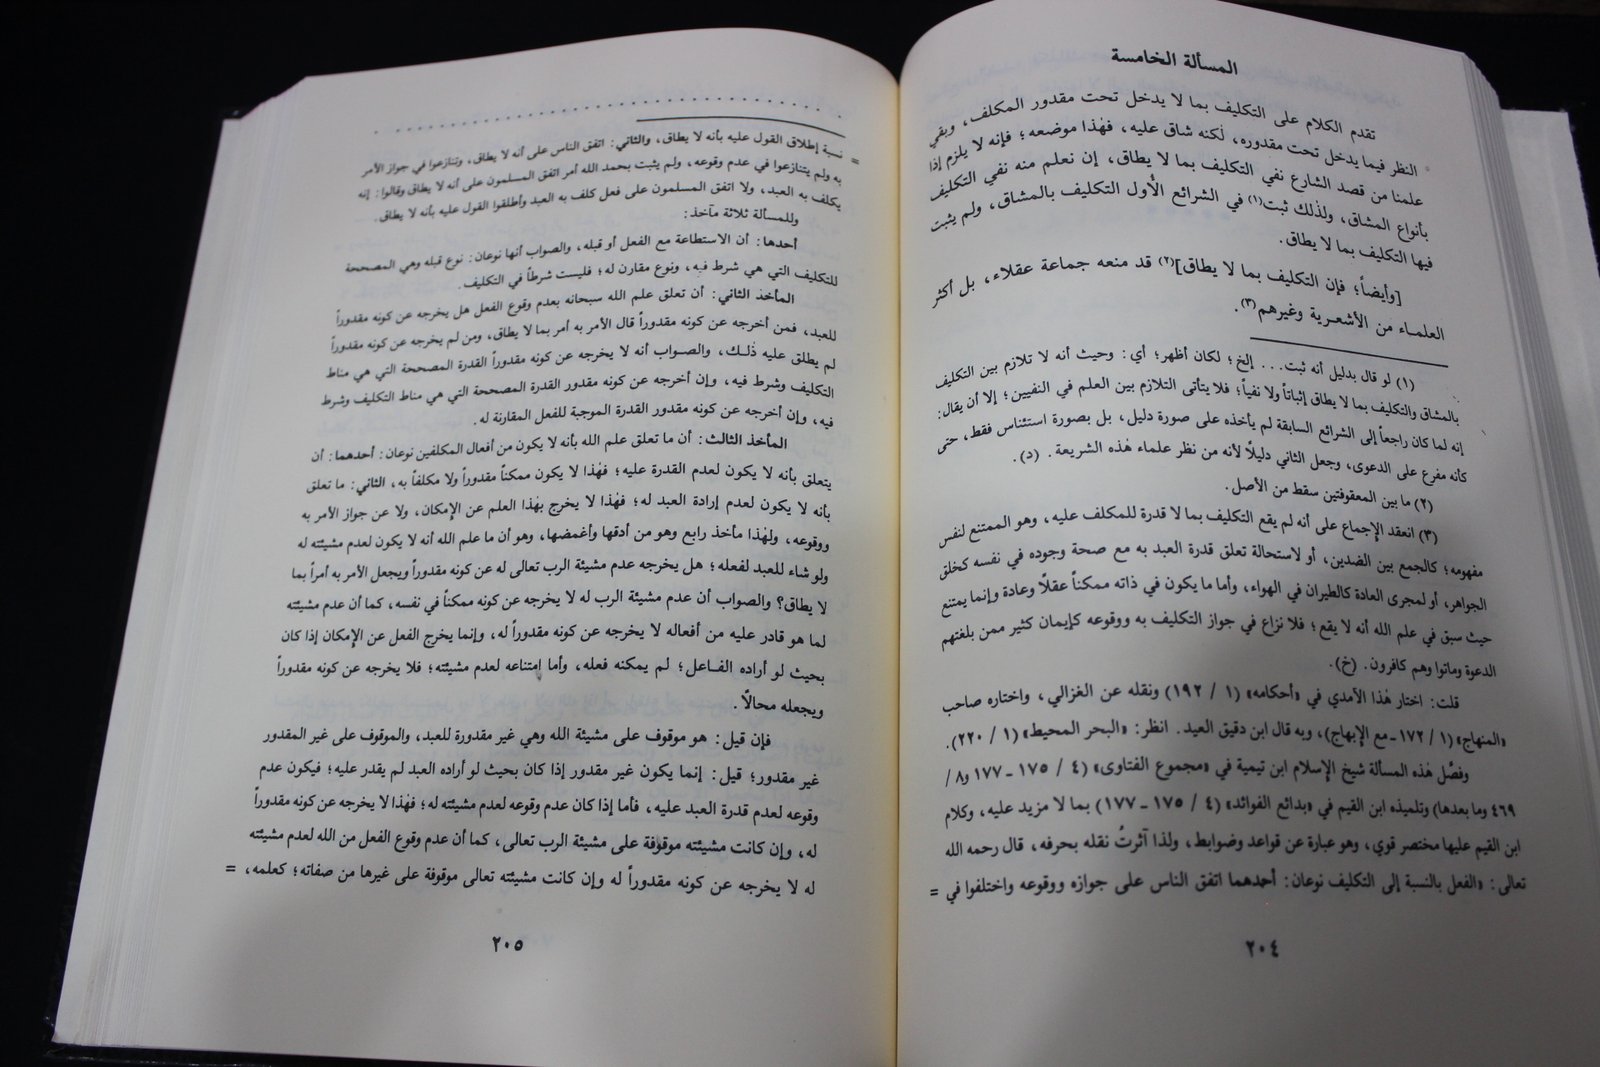 المسألة الخامسة
تقدم الكلام على التكليف بما لا يدخل تحت مقدور المكلف، وبقي
النظر فيما يدخل تحت مقدوره، لكنه شاق عليه، فهذا موضعه؛ فإنه لا يلزم إذا
علمنا من قصد الشارع نفي التكليف بما لا يطاق، إن نعلم منه نفي التكليف
بأنواع المشاق، ولذلك ثبت(١) في الشرائع الأول التكليف بالمشاق، ولم يثبت
فيها التكليف بما لا يطاق.
[وأيضاً؛ فإن التكليف بما لا يطاق](٢) قد منعه جماعة عقلاء، بل أكثر
العلمـاء من الأشعـرية وغيرهم(٣).
(١) لو قال بدليل أنه ثبت... إلخ؛ لكان أظهر؛ أي: وحيث أنه لا تلازم بين التكليف
بالمشاق والتكليف بما لا يطاق إثباتاً ولا نفياً؛ فلا يتأتى التلازم بين العلم في النفيين؛ إلا أن يقال:
إنه لما كان راجعاً إلى الشرائع السابقة لم يأخذه على صورة دليل، بل بصورة استئناس فقط، حتى
كأنه مفرع على الدعوى، وجعل الثاني دليلًا لأنه من نظر علماء هذه الشريعة. (د).
(٢) ما بين المعقوفتين سقط من الأصل.
(٣) انعقد الإجماع على أنه لم يقع التكليف بما لا قدرة للمكلف عليه، وهو الممتنع لنفس
مفهومه؛ كالجمع بين الضدين، أو لاستحالة تعلق قدرة العبد به مع صحة وجوده في نفسه كخلق
الجواهر، أو لمجرى العادة كالطيران في الهواء، وأما ما يكون في ذاته ممكناً عقلًا وعادة وإنما يمتنع
حيث سبق في علم الله أنه لا يقع؛ فلا نزاع في جواز التكليف به ووقوعه كإيمان كثير ممن بلغتهم
الدعوة وماتوا وهم كافرون. (خ).
قلت: اختار هذا الآمدي في «أحكامه» (١ / ١٩٢) ونقله عن الغزالي، واختاره صاحب
«المنهاج» (١ / ١٧٢ - مع الإبهاج)، وبه قال ابن دقيق العيد. انظر: «البحر المحيط» (١ / ٢٢٠).
وفصَّل هذه المسألة شيخ الإسلام ابن تيمية في «مجموع الفتاوى» (٤ / ١٧٥ - ١٧٧ و٨ /
٤٦٩ وما بعدها) وتلميذه ابن القيم في «بدائع الفوائد» (٤ / ١٧٥ - ١٧٧) بما لا مزيد عليه، وكلام
ابن القيم عليها مختصر قوي، وهو عبارة عن قواعد وضوابط، ولذا آثرتُ نقله بحرفه، قال رحمه الله
تعالى: «الفعل بالنسبة إلى التكليف نوعان: أحدهما اتفق الناس على جوازه ووقوعه واختلفوا في =
٢٠٤
= نسبة إطلاق القول عليه بأنه لا يطاق، والثاني: اتفق الناس على أنه لا يطاق، وتنازعوا في جواز الأمر
به ولم يتنازعوا في عدم وقوعه، ولم يثبت بحمد الله أمر اتفق المسلمون على أنه لا يطاق وقالوا: إنه
يكلف به العبد، ولا اتفق المسلمون على فعل كلف به العبد وأطلقوا القول عليه بأنه لا يطاق.
وللمسألة ثلاثة مآخذ:
أحدها: أن الاستطاعة مع الفعل أو قبله، والصواب أنها نوعان: نوع قبله وهي المصححة
للتكليف التي هي شرط فيه، ونوع مقارن له؛ فليست شرطاً في التكليف.
المأخذ الثاني: أن تعلق علم الله سبحانه بعدم وقوع الفعل هل يخرجه عن كونه مقدوراً
للعبد، فمن أخرجه عن كونه مقدوراً قال الأمر به أمر بما لا يطاق، ومن لم يخرجه عن كونه مقدوراً
لم يطلق عليه ذلـك، والصـواب أنه لا يخرجه عن كونه مقدوراً القدرة المصححة التي هي مناط
التكليف وشرط فيه، وإن أخرجه عن كونه مقدور القدرة المصححة التي هي مناط التكليف وشرط
فيه، وإن أخرجه عن كونه مقدور القدرة الموجبة للفعل المقارنة له.
المأخذ الثالث: أن ما تعلق علم الله بأنه لا يكون من أفعال المكلفين نوعان: أحدهما: أن
يتعلق بأنه لا يكون لعدم القدرة عليه؛ فهذا لا يكون ممكناً مقدوراً ولا مكلفاً به، الثاني: ما تعلق
بأنه لا يكون لعدم إرادة العبد له؛ فهذا لا يخرج بهذا العلم عن الإمكان، ولا عن جواز الأمر به
ووقوعه، ولهذا مأخذ رابع وهو من أدقها وأغمضها، وهو أن ما علم الله أنه لا يكون لعدم مشيئته له
ولو شاء للعبد لفعله؛ هل يخرجه عدم مشيئة الرب تعالى له عن كونه مقدوراً ويجعل الأمر به أمراً بما
لا يطاق؟ والصواب أن عدم مشيئة الرب له لا يخرجه عن كونه ممكناً في نفسه، كما أن عدم مشيئته
لما هو قادر عليه من أفعاله لا يخرجه عن كونه مقدوراً له، وإنما يخرج الفعل عن الإمكان إذا كان
بحيث لو أراده الفـاعل؛ لم يمكنه فعله، وأما امتناعه لعدم مشيئته؛ فلا يخرجه عن كونه مقدوراً
ويجعله محالًا.
فإن قيل: هو موقوف على مشيئة الله وهي غير مقدورة للعبد، والموقوف على غير المقدور
غير مقدور؛ قيل: إنما يكون غير مقدور إذا كان بحيث لو أراده العبد لم يقدر عليه؛ فيكون عدم
وقوعه لعدم قدرة العبد عليه، فأما إذا كان عدم وقوعه لعدم مشيئته له؛ فهذا لا يخرجه عن كونه مقدوراً
له، وإن كانت مشيئته موقوفة على مشيئة الرب تعالى، كما أن عدم وقوع الفعل من الله لعدم مشيئته
له لا يخرجه عن كونه مقدوراً له وإن كانت مشيئته تعالى موقوفة على غيرها من صفاته؛ كعلمه، =
٢٠٥